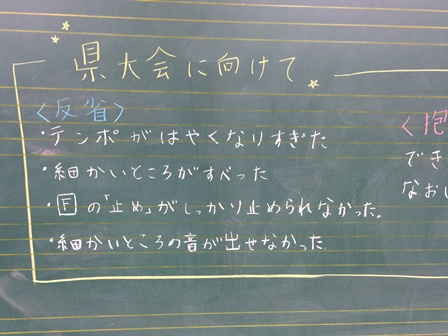 県大会に向けて
〈反省〉
・テンポがはやくなりすぎた
・細かいところがすべった
・F の「止め」がしっかり止められなかった。
・細かいところの音が出せなかった
〈抱
でき
なおし